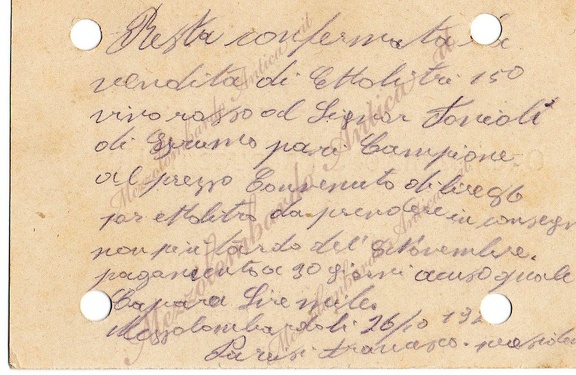 Resta confermata la
vendita di Ettolitri 150
vino rosso al Signor Tonioli
di Grumo pari Campione
al prezzo Convenuto di lire 96
per ettolitro da prendere in consegna
non più tardo del' 8 Novembre.
pagamento a 90 giorni acuso quale
Capara Lire mille.
Mezzolombardo li 26/10 192
Parisi Francesco
Mezzolombardo Antica .it